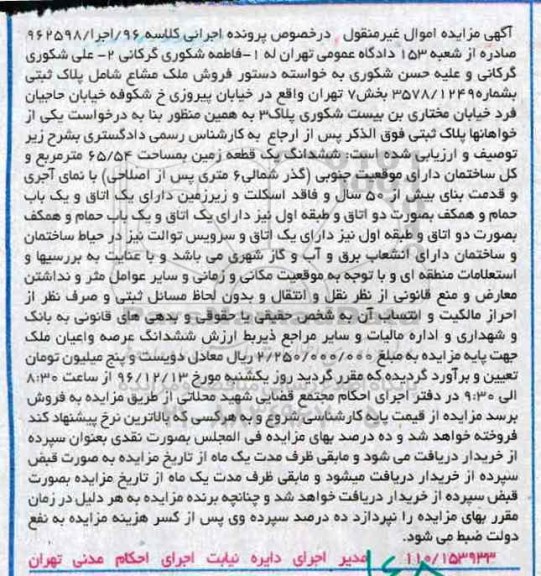 آگهی مزایده اموال غیرمنقول درخصوص پرونده اجرائی کلاسه ۹۶/اجرا/۹۶۲۵۹۸
صادره از شعبه ۱۵۳ دادگاه عمومی تهران له ۱-فاطمه شکوری گرکانی ۲- علی شکوری
گرکانی و علیه حسن شکوری به خواسته دستور فروش ملک مشاع شامل پلاک ثبتی
بشماره۳۵۷۸/۱۲۴۹ بخش۷ تهران واقع در خیابان پیروزی خ شکوفه خیابان حاجیان
فرد خیابان مختاری بن بیست شکوری پلاک۳ به همین منظور بنا به درخواست یکی از
خواهانها پلاک ثبتی فوق الذکر پس از ارجاع به کارشناس رسمی دادگستری بشرح زیر
توصیف و ارزیابی شده است: ششدانگ یک قطعه زمین بمساحت ۶۵/۵۴ مترمربع و
کل ساختمان دارای موقعیت جنوبی (گذر شمالی۶ متری پس از اصلاحی) با نمای آجری
و قدمت بنای بیش از ۵۰ سال و فاقد اسکلت و زیرزمین دارای یک اتاق و یک باب
حمام و همکف بصورت دو اتاق و طبقه اول نیز دارای یک اتاق و یک باب حمام و همکف
بصورت دو اتاق و طبقه اول نیز دارای یک اتاق و سرویس توالت نیز در حیاط ساختمان
و ساختمان دارای انشعاب برق و آب و گاز شهری می باشد و با عنایت به بررسیها و
استعلامات منطقه ای و با توجه به موقعیت مکانی و زمانی و سایر عوامل مثر و نداشتن
معارض و منع قانونی از نظر نقل و انتقال و بدون لحاظ مسائل ثبتی و صرف نظر از
احراز مالکیت و انتساب آن به شخص حقیقی یا حقوقی و بدهی های قانونی به بانک
و شهرداری و اداره مالیات و سایر مراجع ذیربط ارزش ششدانگ عرصه واعیان ملک
جهت پایه مزایده به مبلغ ۲/۲۵۰/۰۰۰/۰۰۰ ریال معادل دویست و پنج میلیون تومان
تعیین و برآورد گردیده که مقرر گردید روز یکشنبه مورخ ۹۶/۱۲/۱۳ از ساعت ۸:۳۰
الی ۹:۳۰ در دفتر اجرای احکام مجتمع قضایی شهید محلاتی از طریق مزایده به فروش
برسد مزایده از قیمت پایه کارشناسی شروع و به هرکسی که بالاترین نرخ پیشنهاد کند
فروخته خواهد شد و ده درصد بهای مزایده فی المجلس بصورت نقدی بعنوان سپرده
از خریدار دریافت می شود و مابقی ظرف مدت یک ماه از تاریخ مزایده به صورت قبض
سپرده از خریدار دریافت میشود و مابقی ظرف مدت یک ماه از تاریخ مزایده بصورت
قبض سپرده از خریدار دریافت خواهد شد و چنانچه برنده مزایده به هر دلیل در زمان
مقرر بهای مزایده را نپردازد ده درصد سپرده وی پس از کسر هزینه مزایده به نفع
دولت ضبط می شود.
۱۱۰/۱۵۳۹۳۳ مدیر اجرای دایره نیابت اجرای احکام مدنی تهران